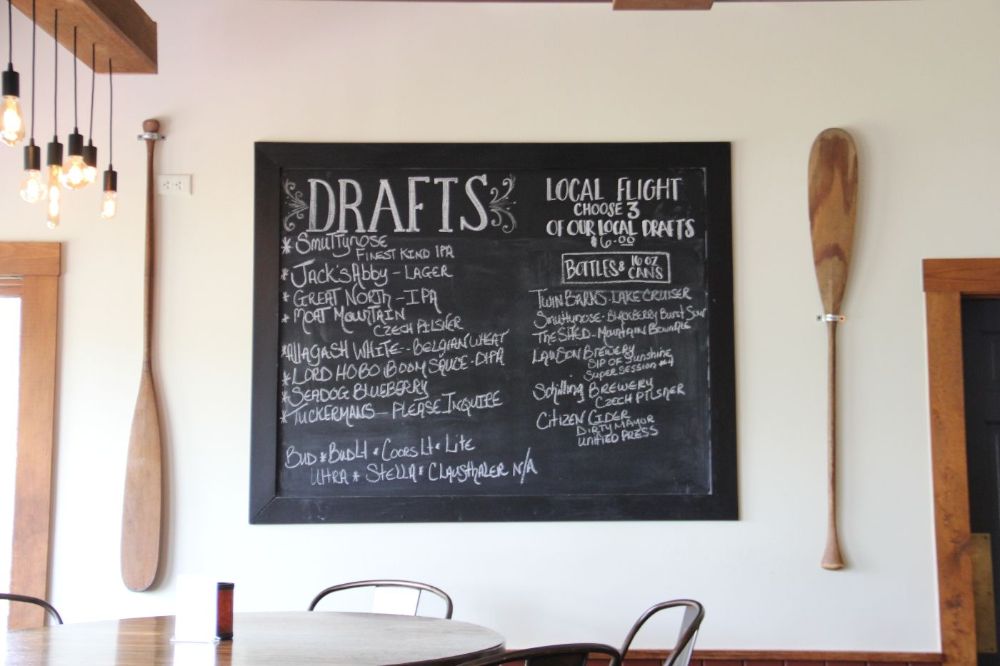 DRAFTS
* Smuttynose
FINEST KIND IPA
* JACK'S ABBY - LAGER
* GREAT NORTH - IPA
* MOAT MOUNTAIN
CZECH PILSNER
* ALLAGASH WHITE - BELGIAN WHEAT
* LORD HOBO BOOM SAUCE - DIPA
* SEADOG BLUEBERRY
* TUCKERMANS - PLEASE INQUIRE
BUD * BUD LT * COORS LT * Lite
ULTRA * STELLA * CLAUSTHALER N/A
LOCAL FLIGHT
CHOOSE 3
OF OUR LOCAL DRAFTS
$6.00
BOTTLES & 16 OZ CANS
TWIN BARNS - LAKE CRUISER
Smuttynose - BLACKBERRY Burst Sour
THE SHED - MOUNTAIN
LAWSON BREWERY
SIP OF Sunshine
Super Session #4
Schilling BREWERY
CZECH PILSNER
CITIZEN CIDER
DIRTY MAYOR
UNIFIED PRESS